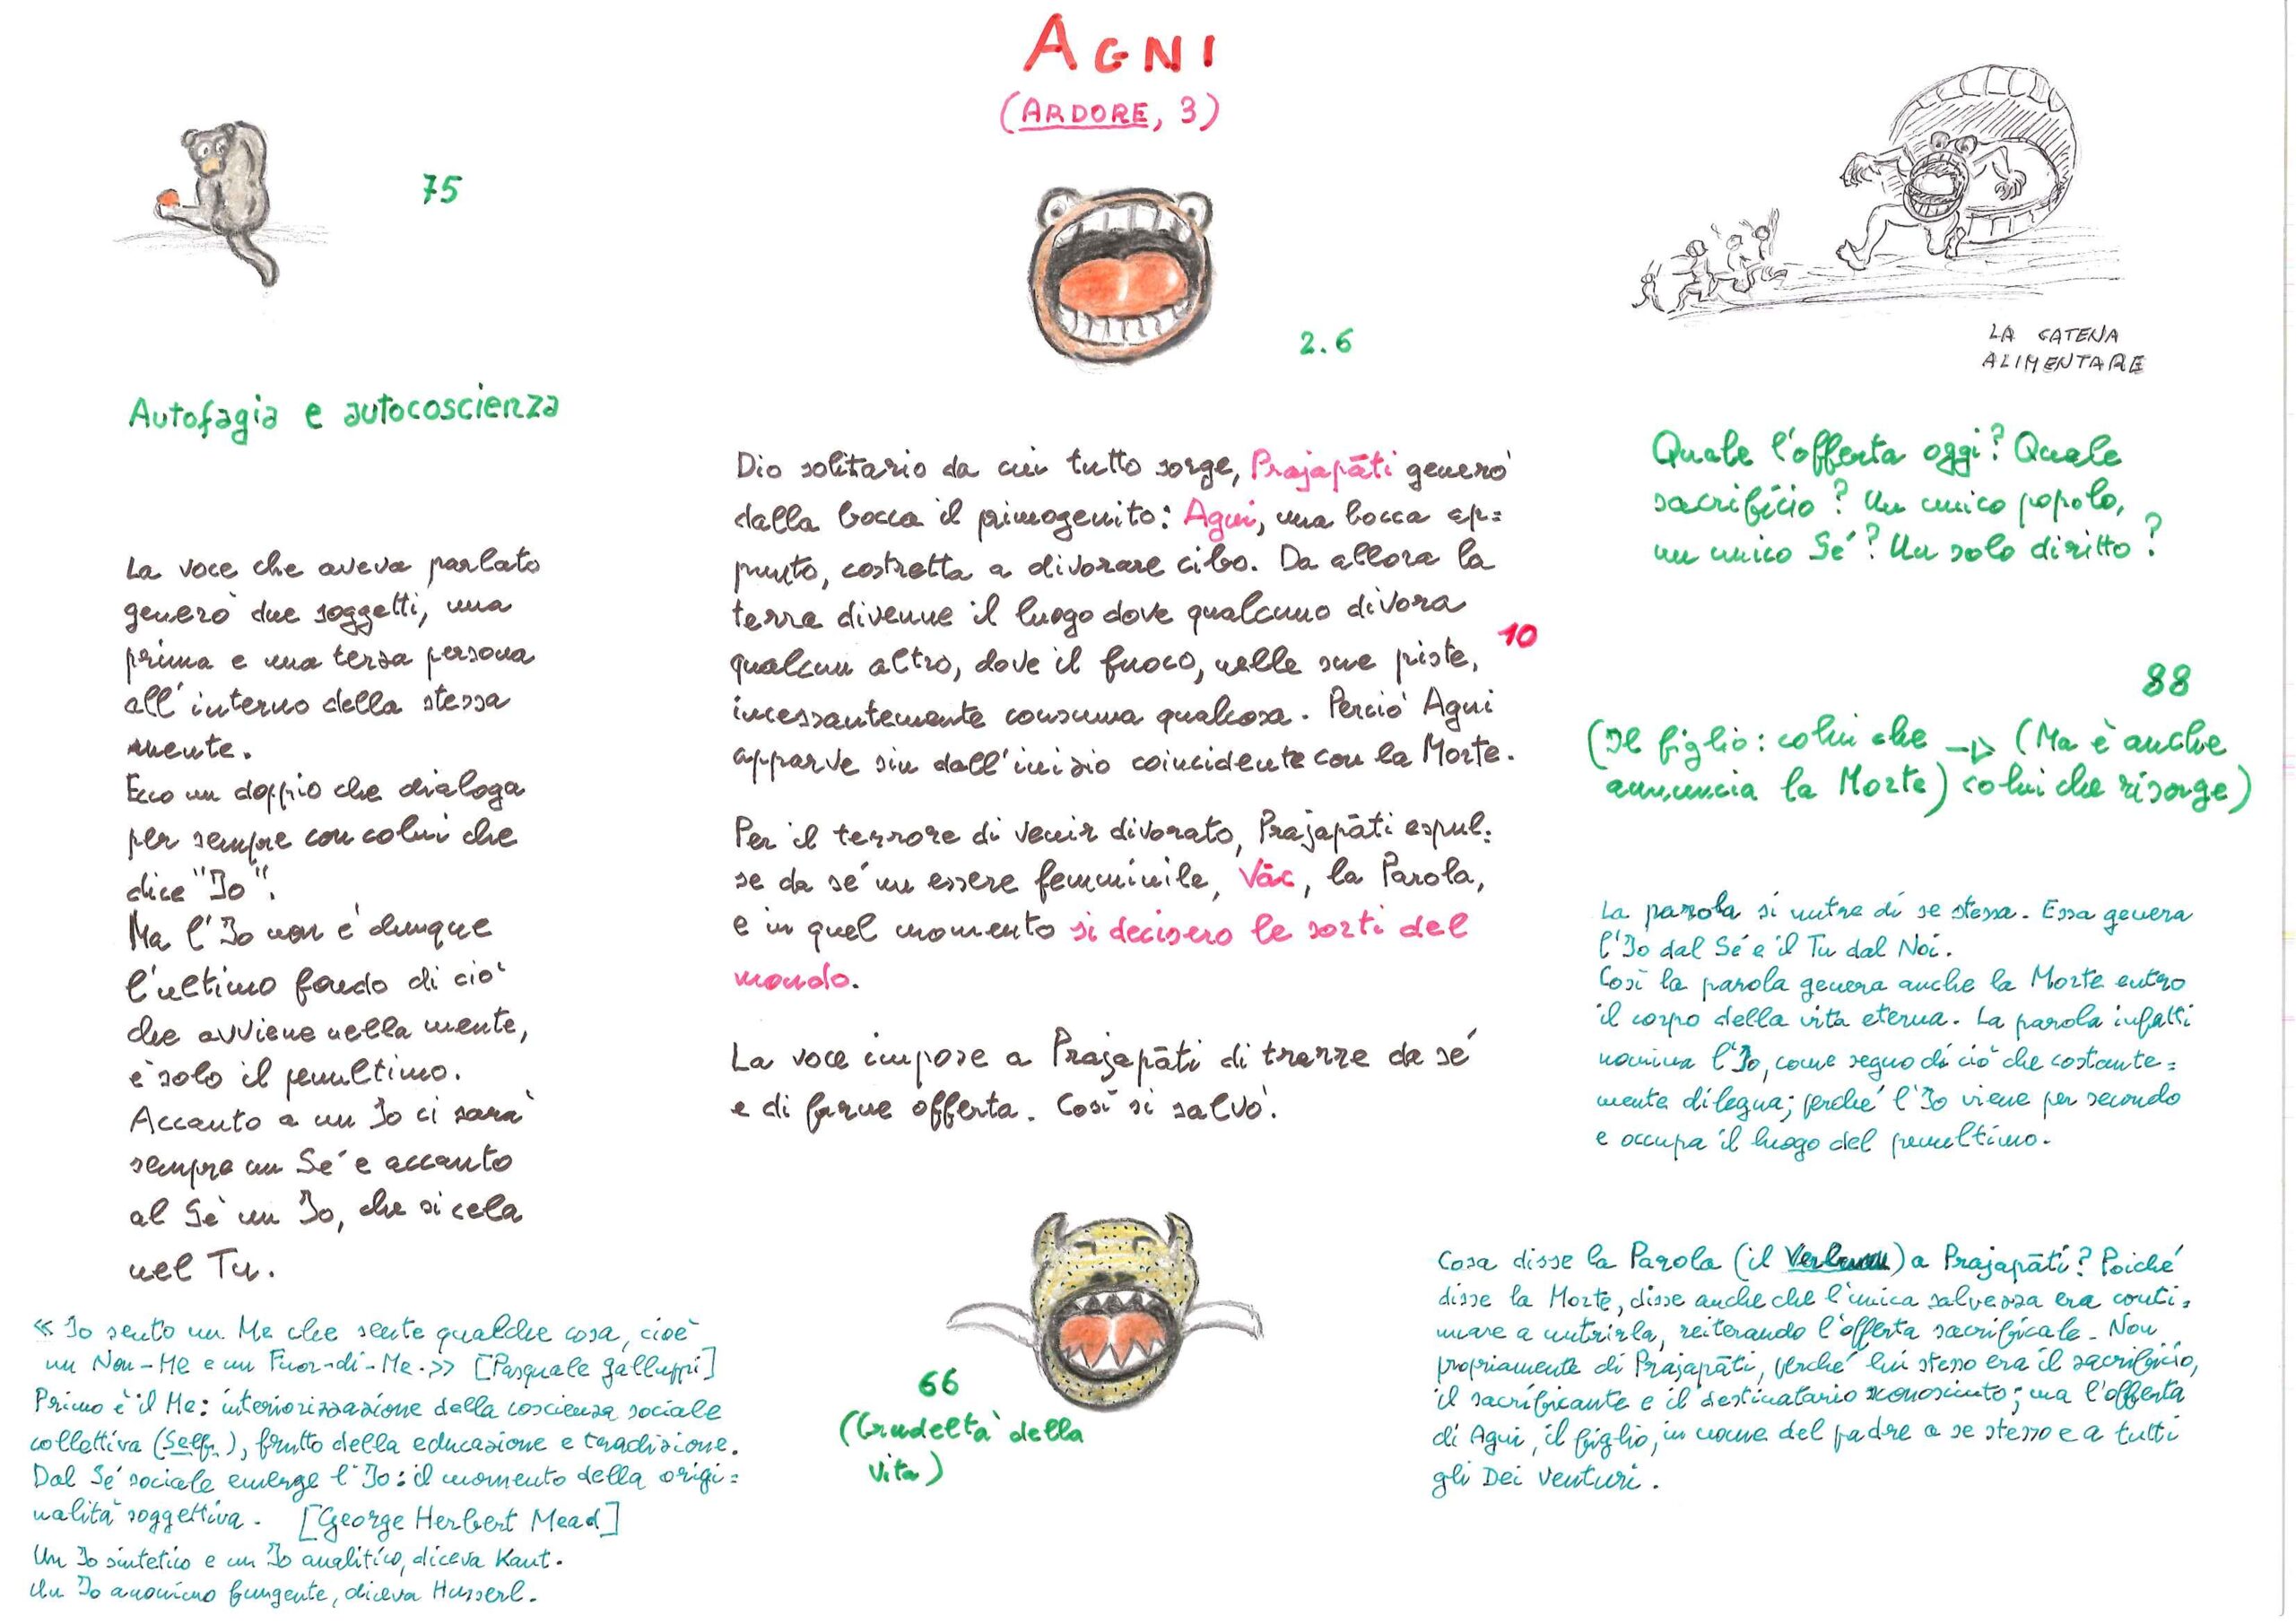 AGNI
(ARDORE, 3)
75
Autofagia e autocoscienza
La voce che aveva parlato
generò due soggetti, una
prima e una terza persona
all'interno della stessa
mente.
Ecco un doppio che dialoga
per sempre con colui che
dice "Io".
Ma l'Io non è dunque
l'ultimo fondo di ciò
che avviene nella mente,
è solo il penultimo.
Accanto a un Io ci sarà
sempre un Sé e accanto
al Sé un Io, che si cela
nel Tu.
«Io sento un Me che sente qualche cosa, cioè
un Non-Me e un Fuor-di-Me.» [Pasquale Galluppi]
Primo è il Me: interiorizzazione della coscienza sociale
collettiva (Self), frutto della educazione e tradizione.
Dal Sé sociale emerge l'Io: il momento della origi=
nalità soggettiva. [George Herbert Mead]
Un Io sintetico e un Io analitico, diceva Kant.
Un Io anonimo fungente, diceva Husserl.
2.6
Dio solitario da cui tutto sorge, Prajapāti generò
dalla bocca il primogenito: Agni, una bocca ap=
punto, costretta a divorare cibo. Da allora la
terra divenne il luogo dove qualcuno divora
qualcun altro, dove il fuoco, nelle sue piste,
10
incessantemente consuma qualcosa. Perciò Agni
apparve sin dall'inizio coincidente con la Morte.
Per il terrore di venir divorato, Prajapāti espul=
se da sé un essere femminile, Vāc, la Parola,
e in quel momento si decisero le sorti del
mondo.
La voce impose a Prajapāti di trarre da sé
e di farne offerta. Così si salvò.
66
(Crudeltà della
vita)
LA CATENA
ALIMENTARE
Quale l'offerta oggi? Quale
sacrificio? Un unico popolo,
un unico Sé? Un solo diritto?
88
(Il figlio: colui che → (Ma è anche
annuncia la Morte) colui che risorge)
La parola si nutre di se stessa. Essa genera
l'Io dal Sé e il Tu dal Noi.
Così la parola genera anche la Morte entro
il corpo della vita eterna. La parola infatti
nomina l'Io, come segno di ciò che costante=
mente dilegua; perché l'Io viene per secondo
e occupa il luogo del penultimo.
Cosa disse la Parola (il Verbum) a Prajapāti? Poiché
disse la Morte, disse anche che l'unica salvezza era conti=
nuare a nutrirla, reiterando l'offerta sacrificale. Non
propriamente di Prajapāti, perché lui stesso era il sacrificio,
il sacrificante e il destinatario sconosciuto; ma l'offerta
di Agni, il figlio, in nome del padre a se stesso e a tutti
gli Dei venturi.